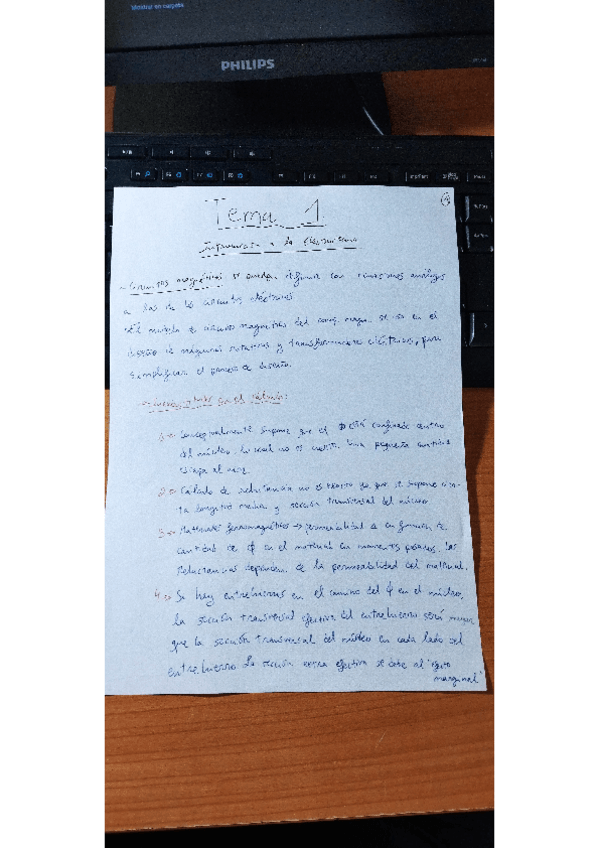 Mostrar en carpeta
PHILIPS
Tema 1
a la
Circuitos magnéticos se pueden con ecuaciones análogas
a las de los circuitos eléctricos
modelo de circuito magnético del se usa en el
diseño de máquinas rotativas y transformadores eléctricos, para
simplificar el proceso de diseño.
en el
1 Conceptualmente supone que el φ está confinado dentro
del núcleo, lo cual no es cierto. Una pequeña cantidad
escapa al
2 Cálculo de reluctancia no es exacto ya que se supone
longitud media y sección transversal del núcleo
3 Materiales ferromagnéticos → permeabilidad en función de
cantidad de φ en el material en momentos pasados. Las
Reluctancias dependen de la permeabilidad del material.
4 Si hay entrehierros en el camino del φ en el núcleo,
la sección transversal efectiva del entrehierro será mayor
que la sección transversal del núcleo en cada lado del
entrehierro. La sección extra efectiva se debe al "efecto
marginal"